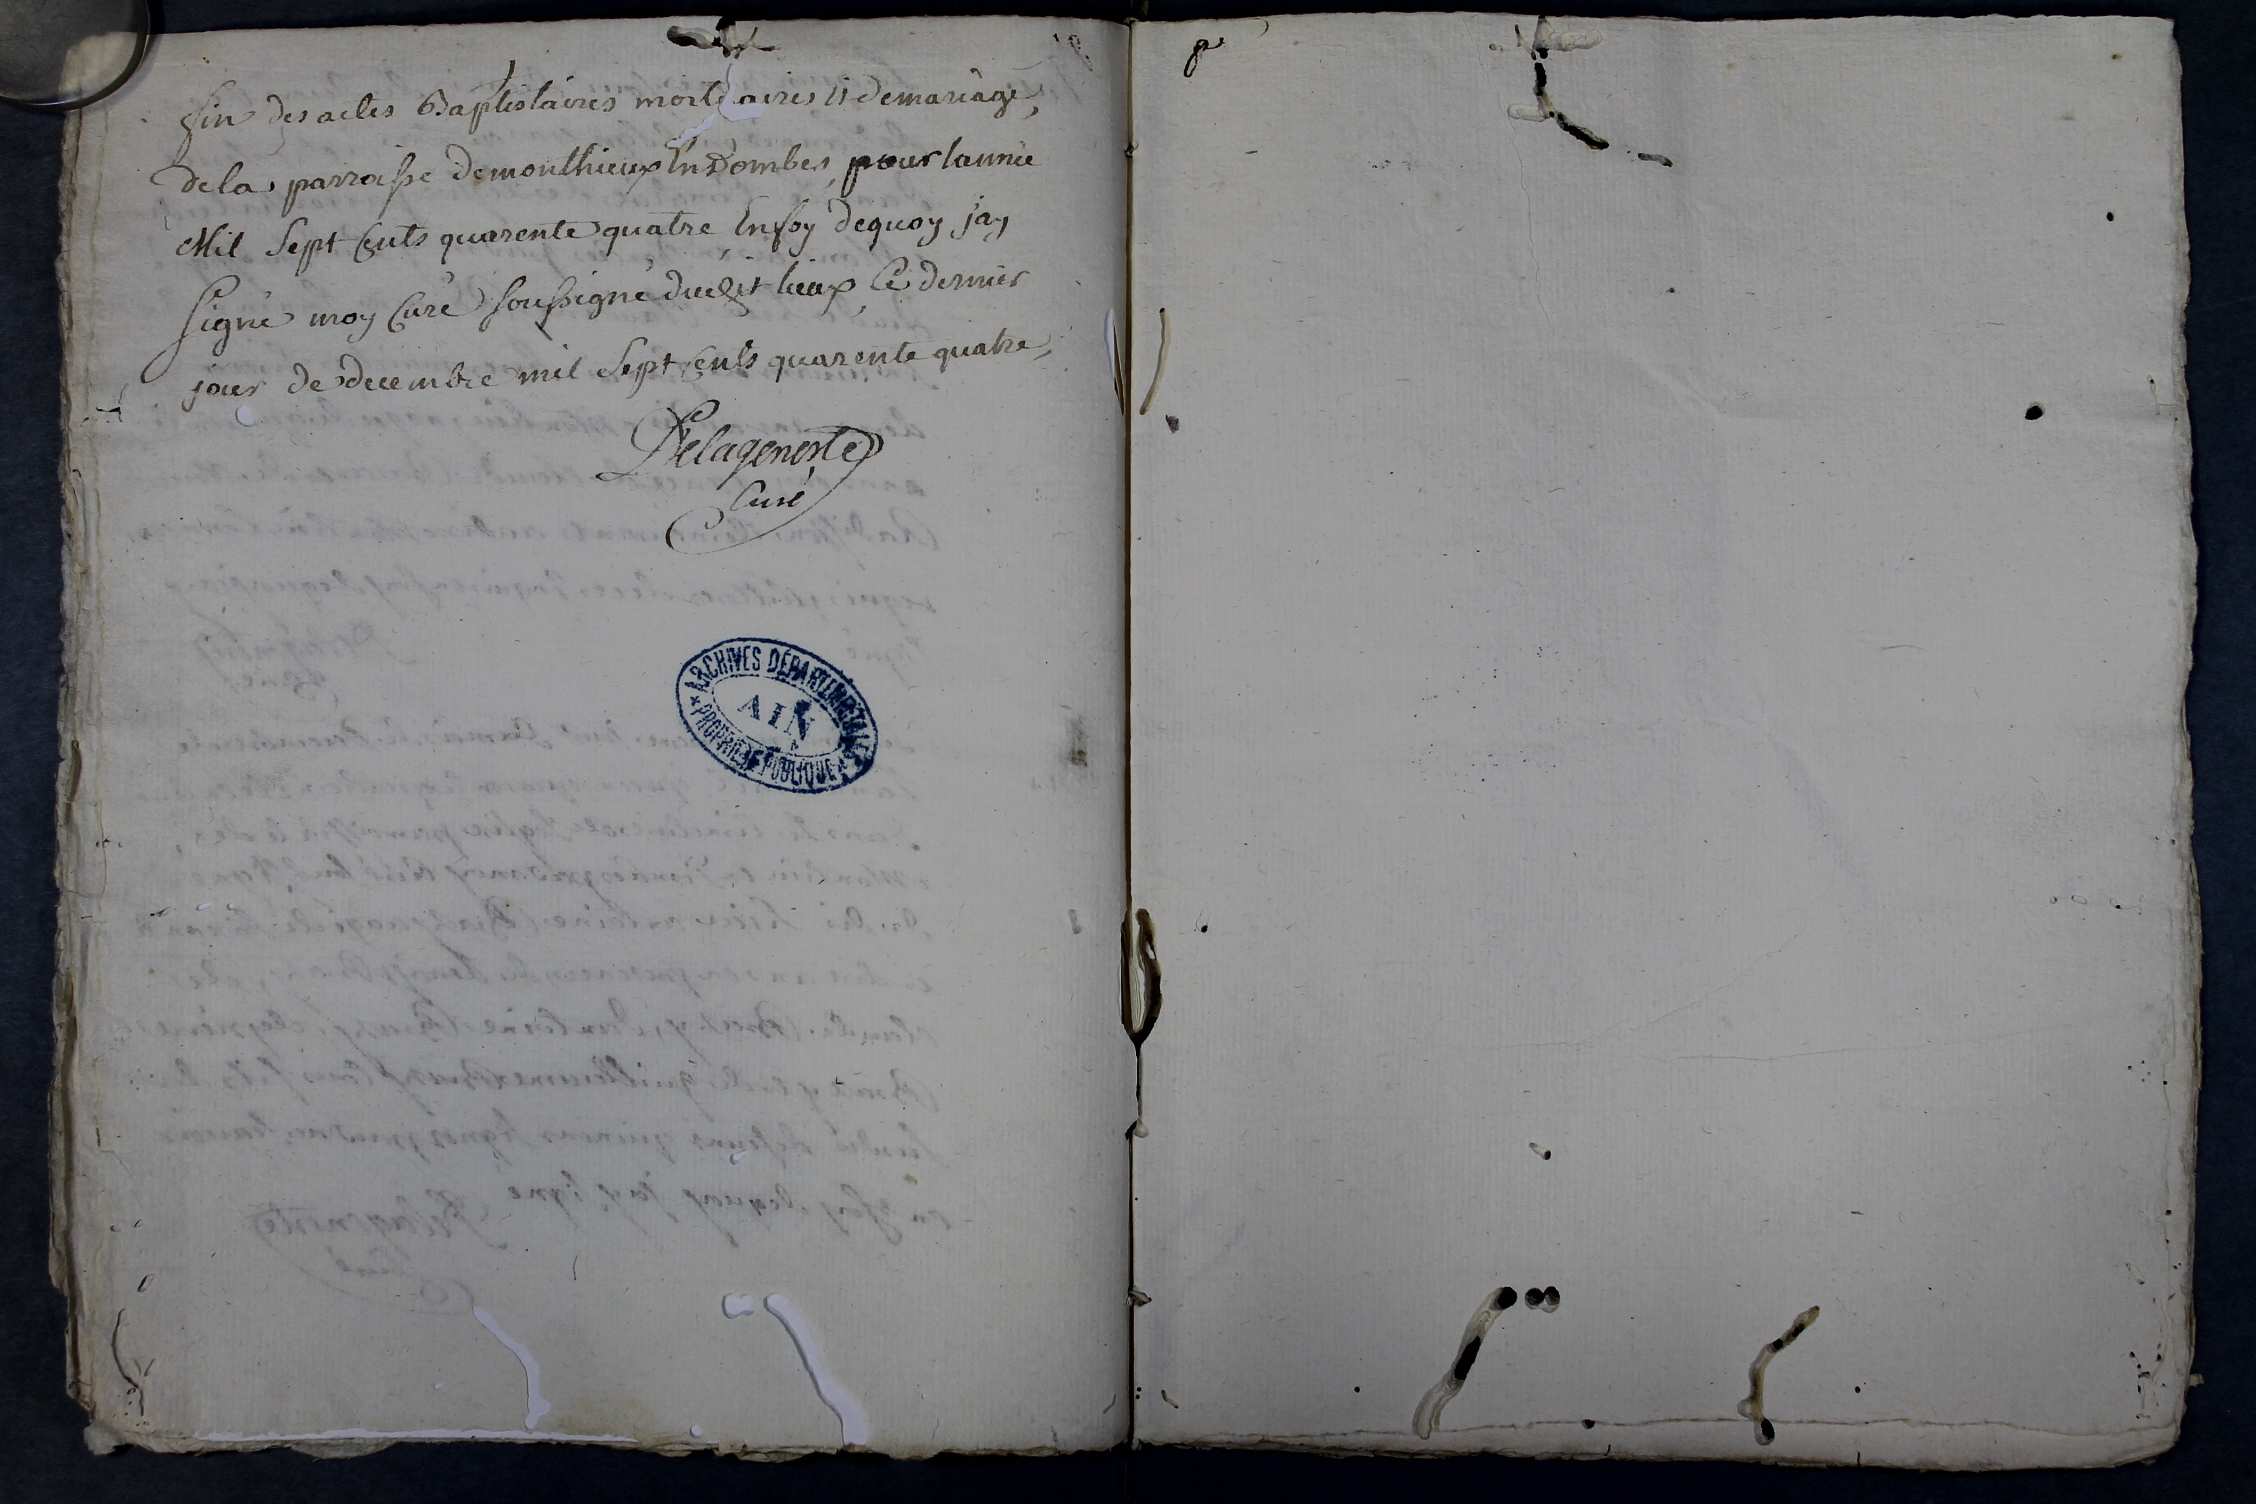 fin des actes Baptistaires mortuaires et de mariage,
de la parroisse de monthieux En Dombes, pour lannée
Mil Sept Cents quarente quatre En foy dequoy j'ay
signé moy Curé soussigné dudit lieux, Ce dernier
jour de decembre mil Sept Cents quarente quatre,
Delageneste
Curé
ARCHIVES DÉPARTEMENTALES
AIN
PROPRIÉTÉ PUBLIQUE